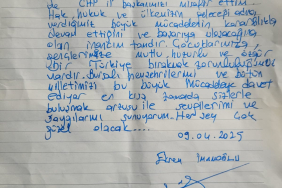 de CHP il başkanımızı misafir ettim.
Hak, hukuk ve ülkemizin geleceği adına
verdiğimiz büyük mücadelenin kararlılıkla
devam ettiğini ve başarıya ulaşacağına
olan inancım tamdır. Çocuklarımıza,
gençlerimize mutlu, huzurlu ve özgür
bir Türkiye bırakmak zorunluluğumuz
vardır. Bursalı hemşehrilerimi ve bütün
milletimizi bu büyük mücadeleye davet
ediyor en kısa zamanda sizlerle
buluşmak arzusu ile sevgilerimi ve
saygılarımı sunuyorum. Herşey çok
güzel olacak....
09.04.2025
Ekrem İmamoğlu